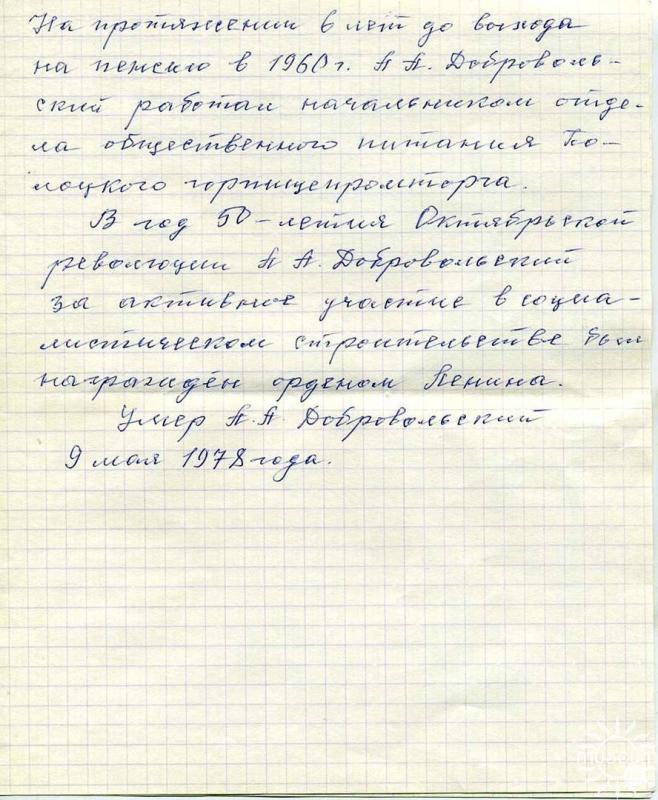 На протяжении 6 лет до выхода
на пенсию в 1960 г. А А. Доброволь-
ский работал начальником отде-
ла общественного питания По-
лоцкого горпищепромторга.
В год 50-летия Октябрьской
революции А А. Добровольский
за активное участие в социа-
листическом строительстве был
награждён орденом Ленина.
Умер А. А. Добровольский
9 мая 1978 года.